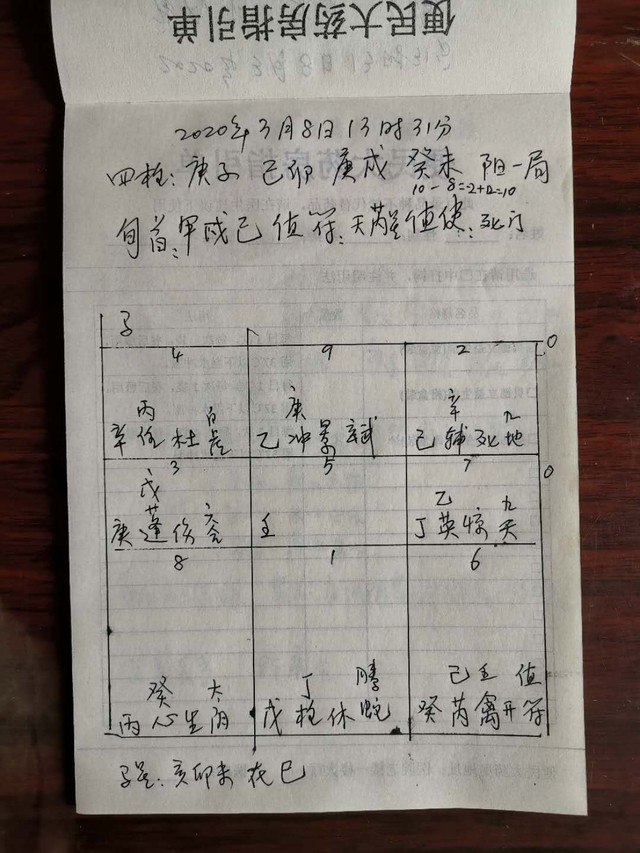 便民大药房指引单
2020年3月8日13时31分
四柱: 庚子 己卯 庚戌 癸未 阳一局
10-8=2+12=10
旬首:甲戌己 值符:天芮星 值使:死门
子
4 9 2 0
丙 庚 辛
辛任杜白虎 乙冲景玄武 己辅死九地
3 5 7 0
戊 乙
庚蓬伤六合 壬 丁英惊九天
8 1 6
癸 太 丁 腾 己壬 值
丙心生阴 戊柱休蛇 癸芮禽开符
马星: 亥卯未在巳